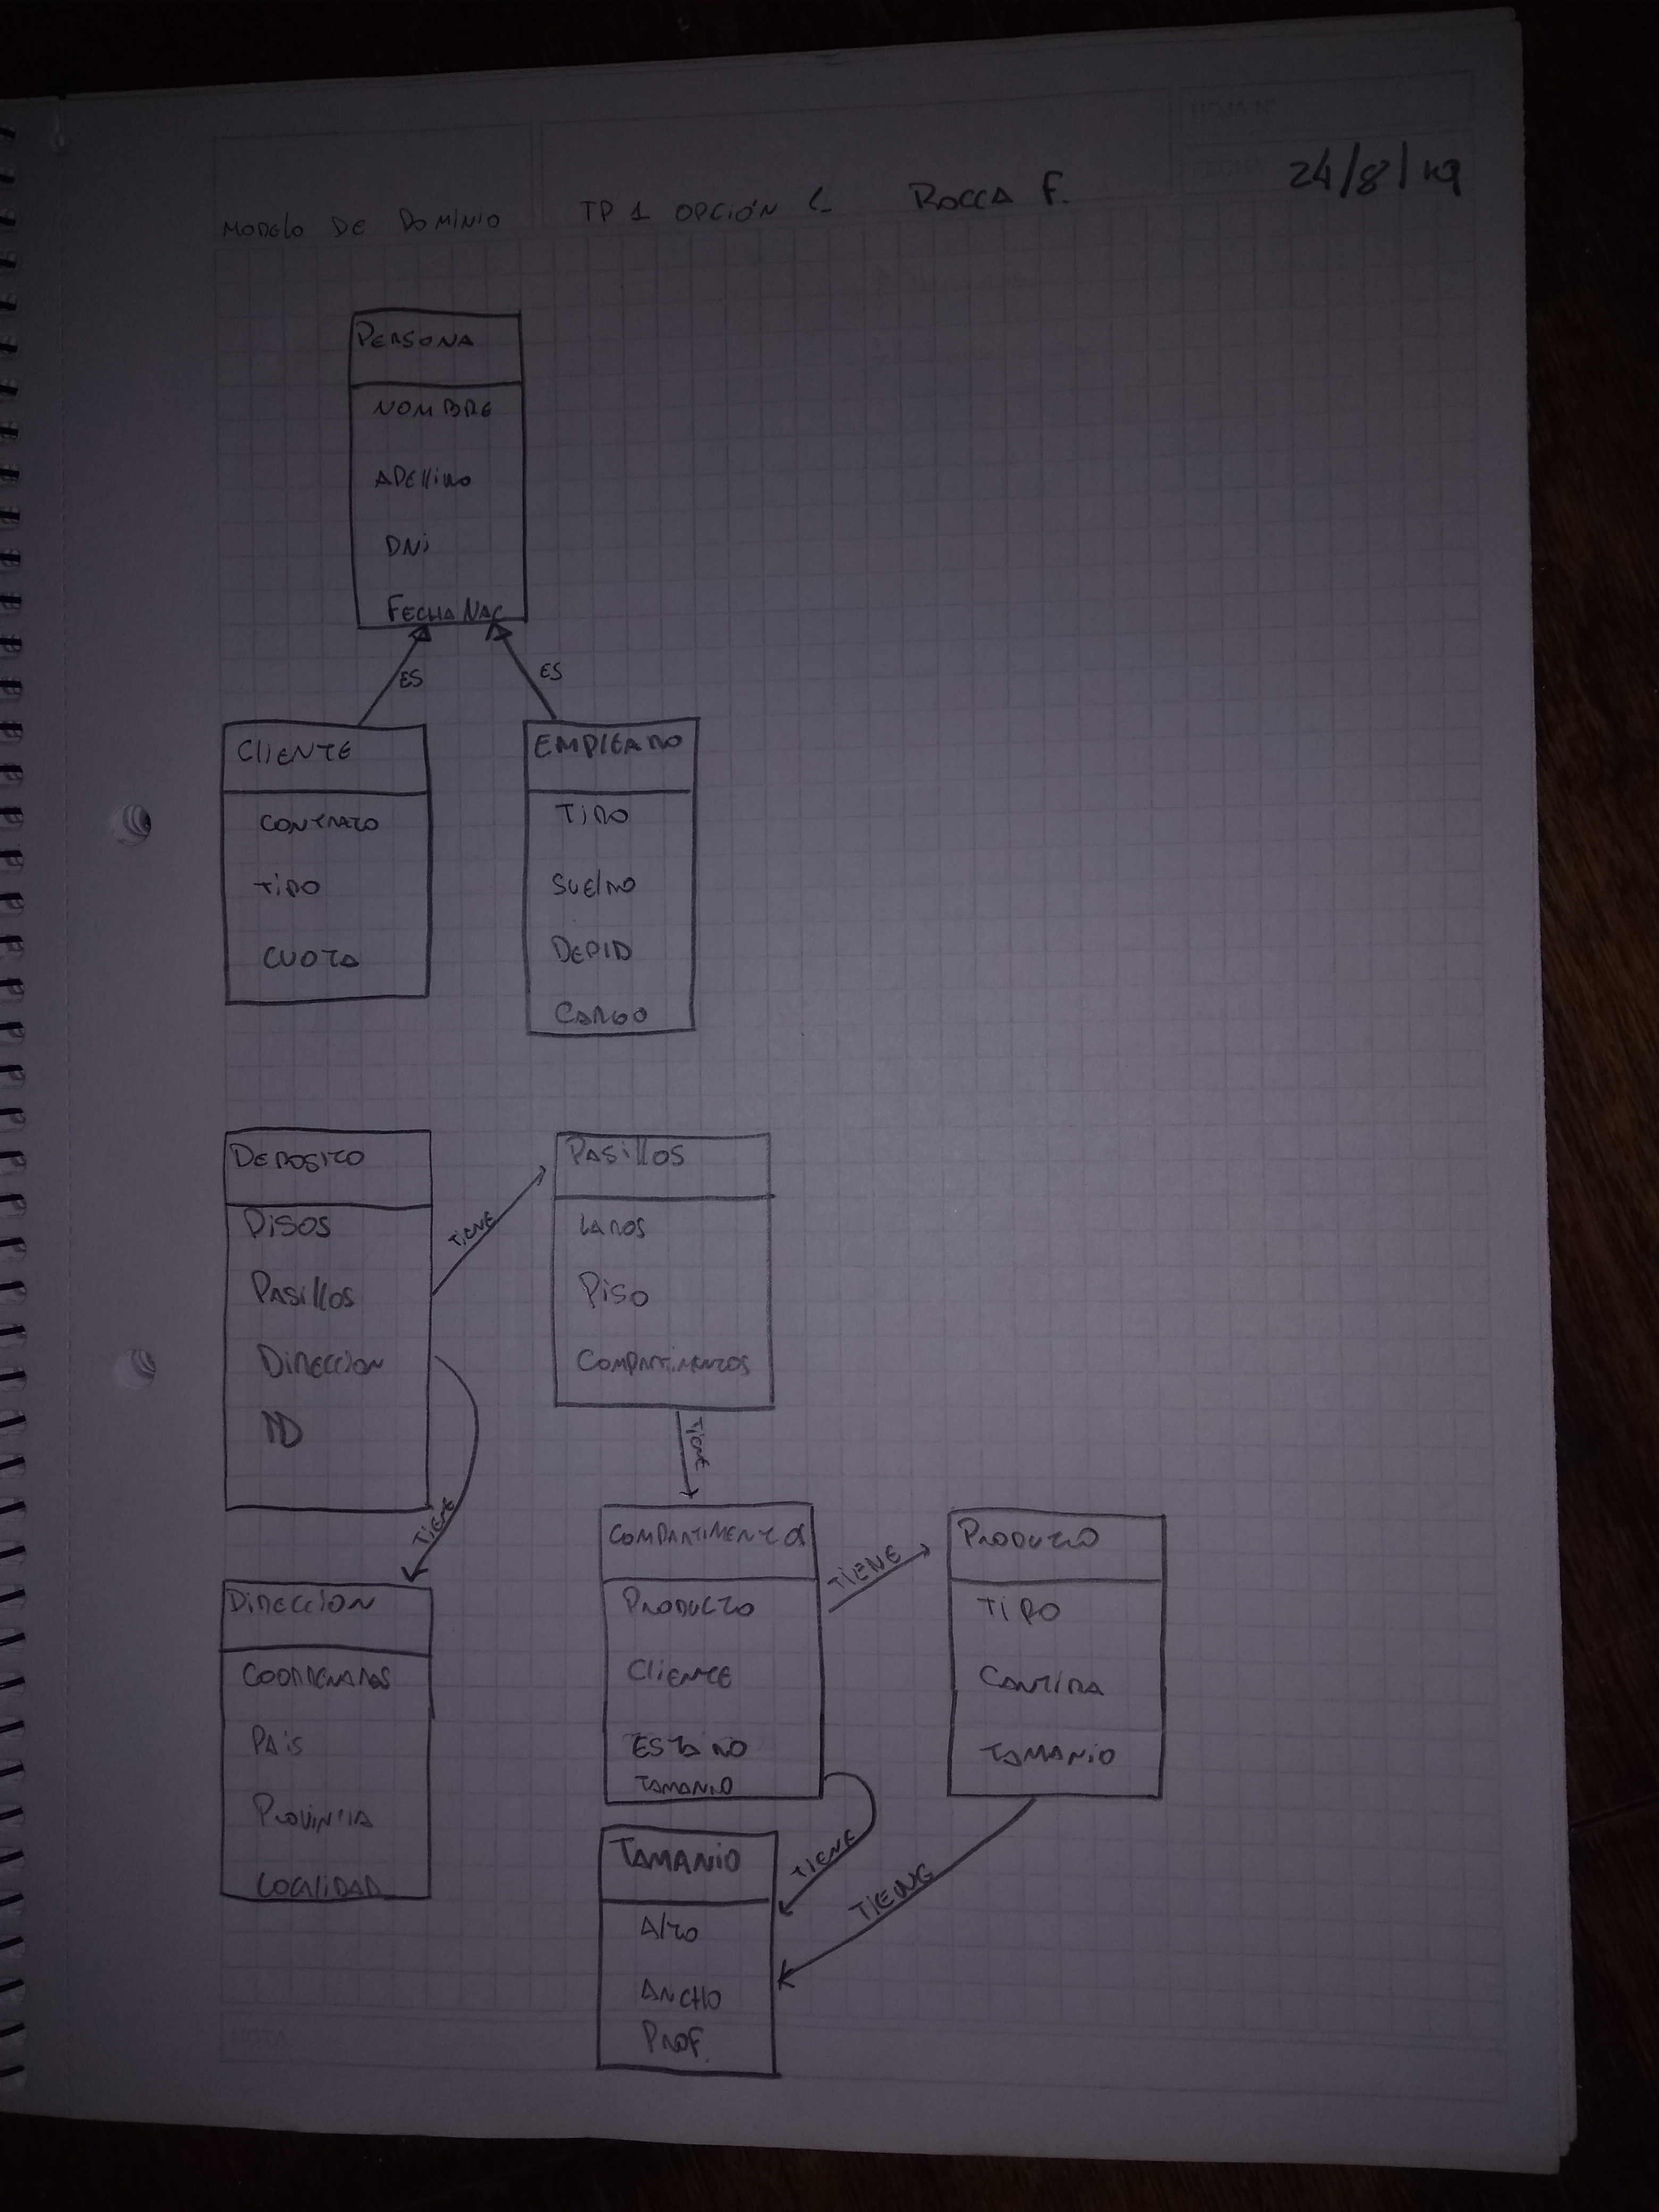 HOJA N°
FECHA
24/8/19
MODELO DE DOMINIO
TP 1 OPCIÓN
ROCCA F.
PERSONA
NOMBRE
APELLIDO
DNi
FECHA NAC
ES
ES
CLIENTE
CONTRATO
TIPO
CUOTA
EMPLEADO
TIPO
SUELDO
DEPID
CARGO
DEPOSITO
PISOS
PASILLOS
DIRECCION
ID
TIENE
TIENE
PASILLOS
LADOS
PISO
COMPARTIMENTOS
TIENE
DIRECCION
COORDENADAS
PAIS
PROVINCIA
LOCALIDAD
COMPARTIMENTO
PRODUCTO
CLIENTE
ESTADO
TAMANIO
TIENE
PRODUCTO
TIPO
CANTIDA
TAMANIO
TIENE
TIENE
TAMANIO
ALTO
ANCHO
PROF.
NOTA